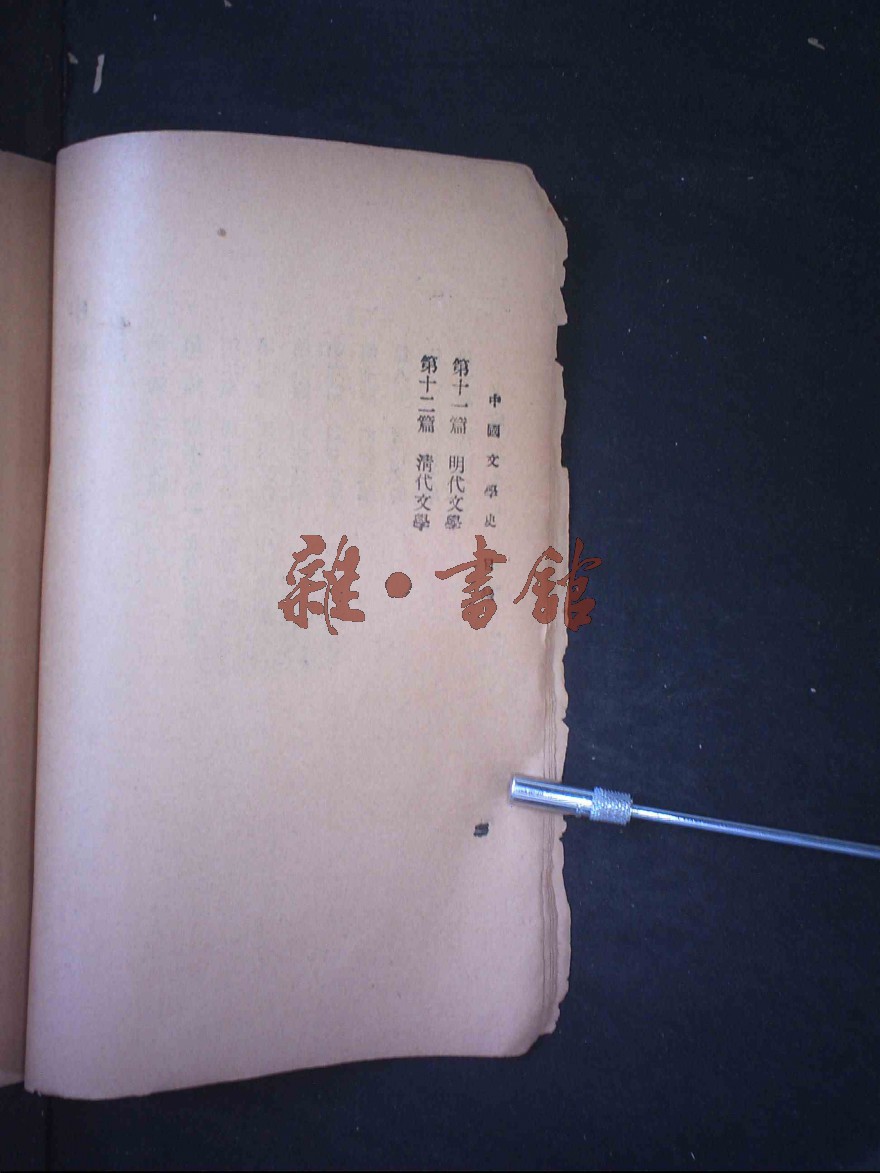 中國文學史
第十一篇 明代文學
第十二篇 清代文學
雜·書館